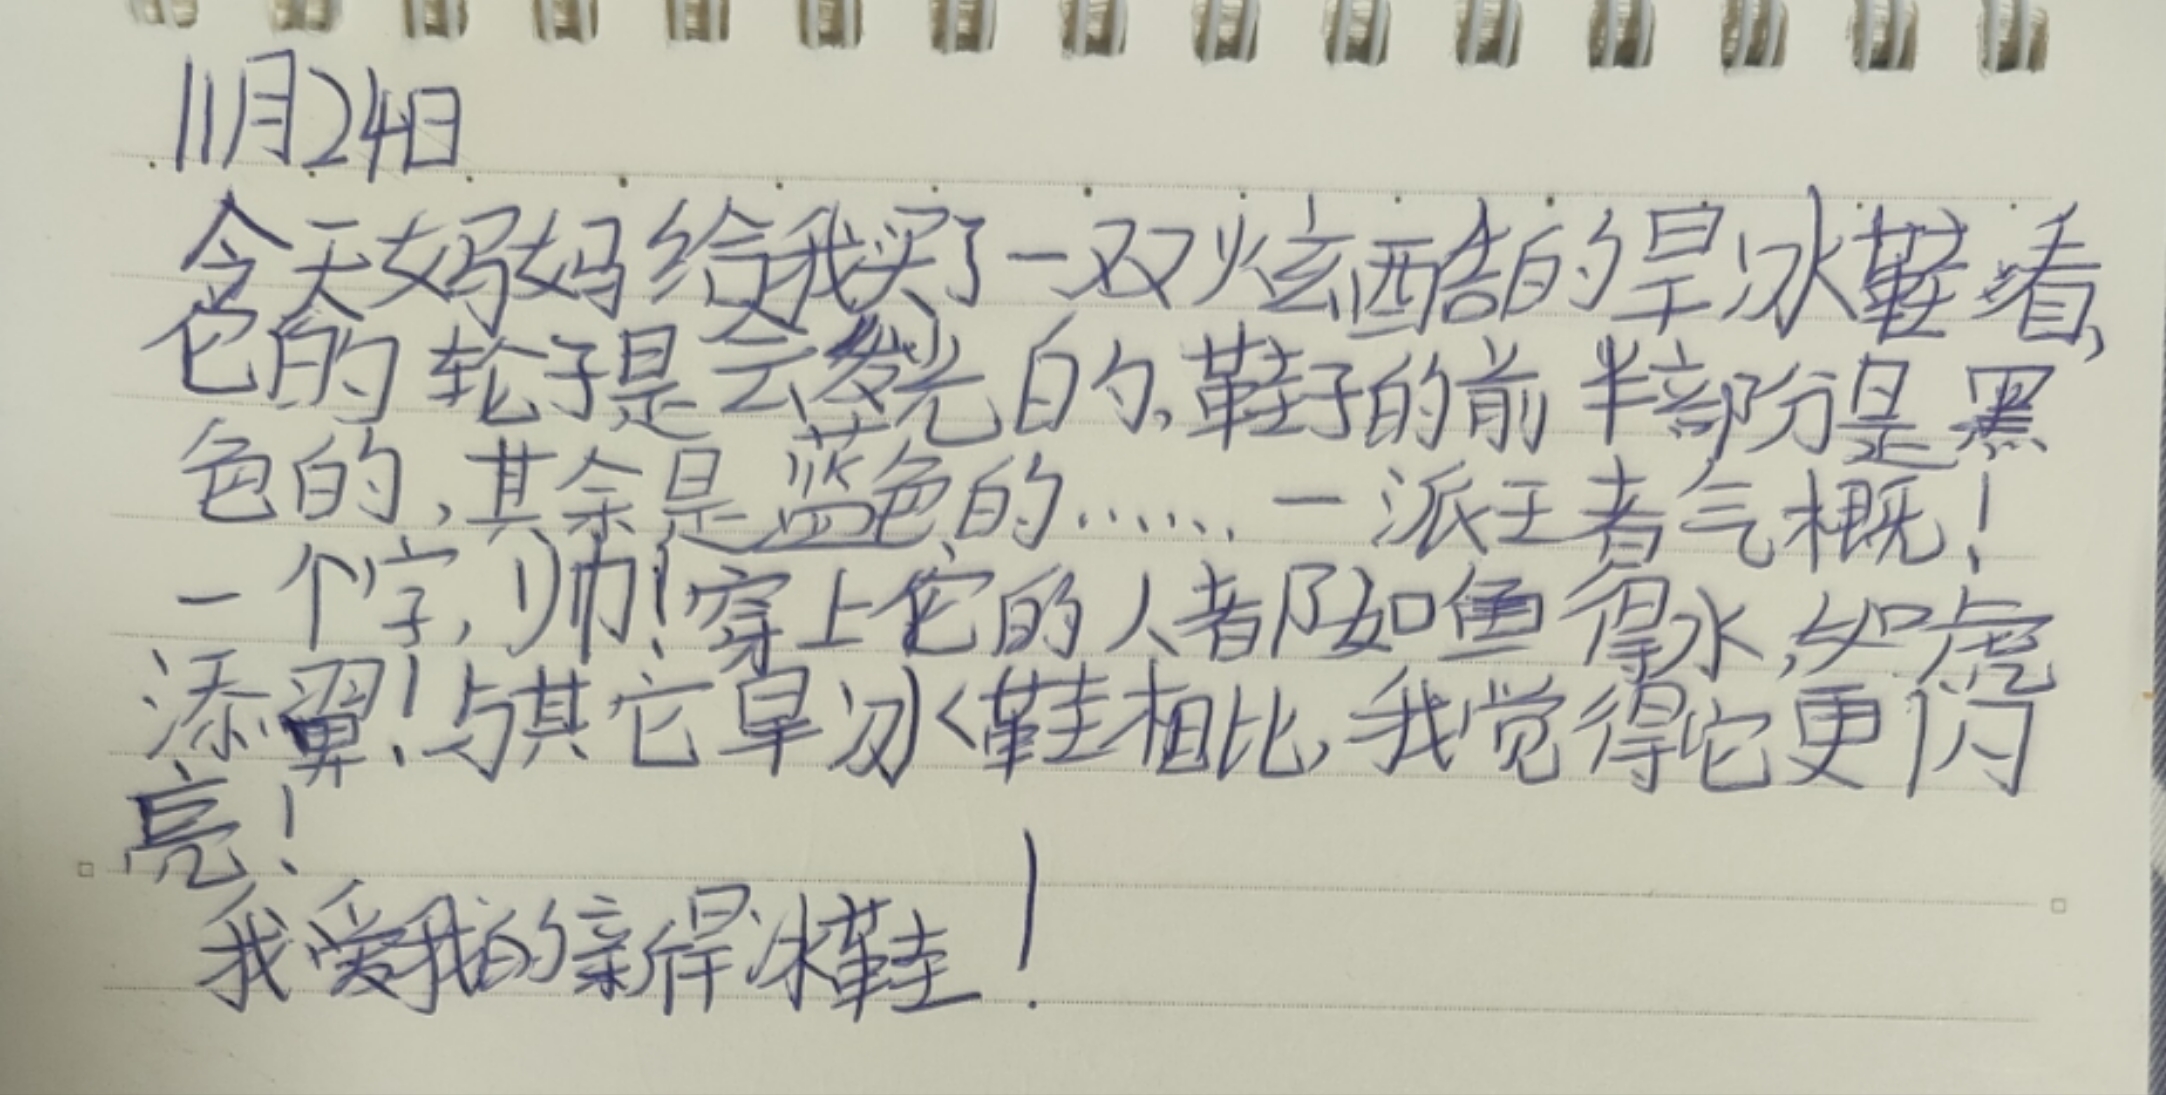 11月24日
今天妈妈给我买了一双炫酷的旱冰鞋看,
它的轮子是会发光的,鞋子的前半部份是黑
色的,其余是蓝色的……一派王者气概!
一个字,帅!穿上它的人者阝如鱼得水,如虎
添翼!与其它旱冰鞋相比,我觉得它更闪
亮!
我爱我的亲旱冰鞋!